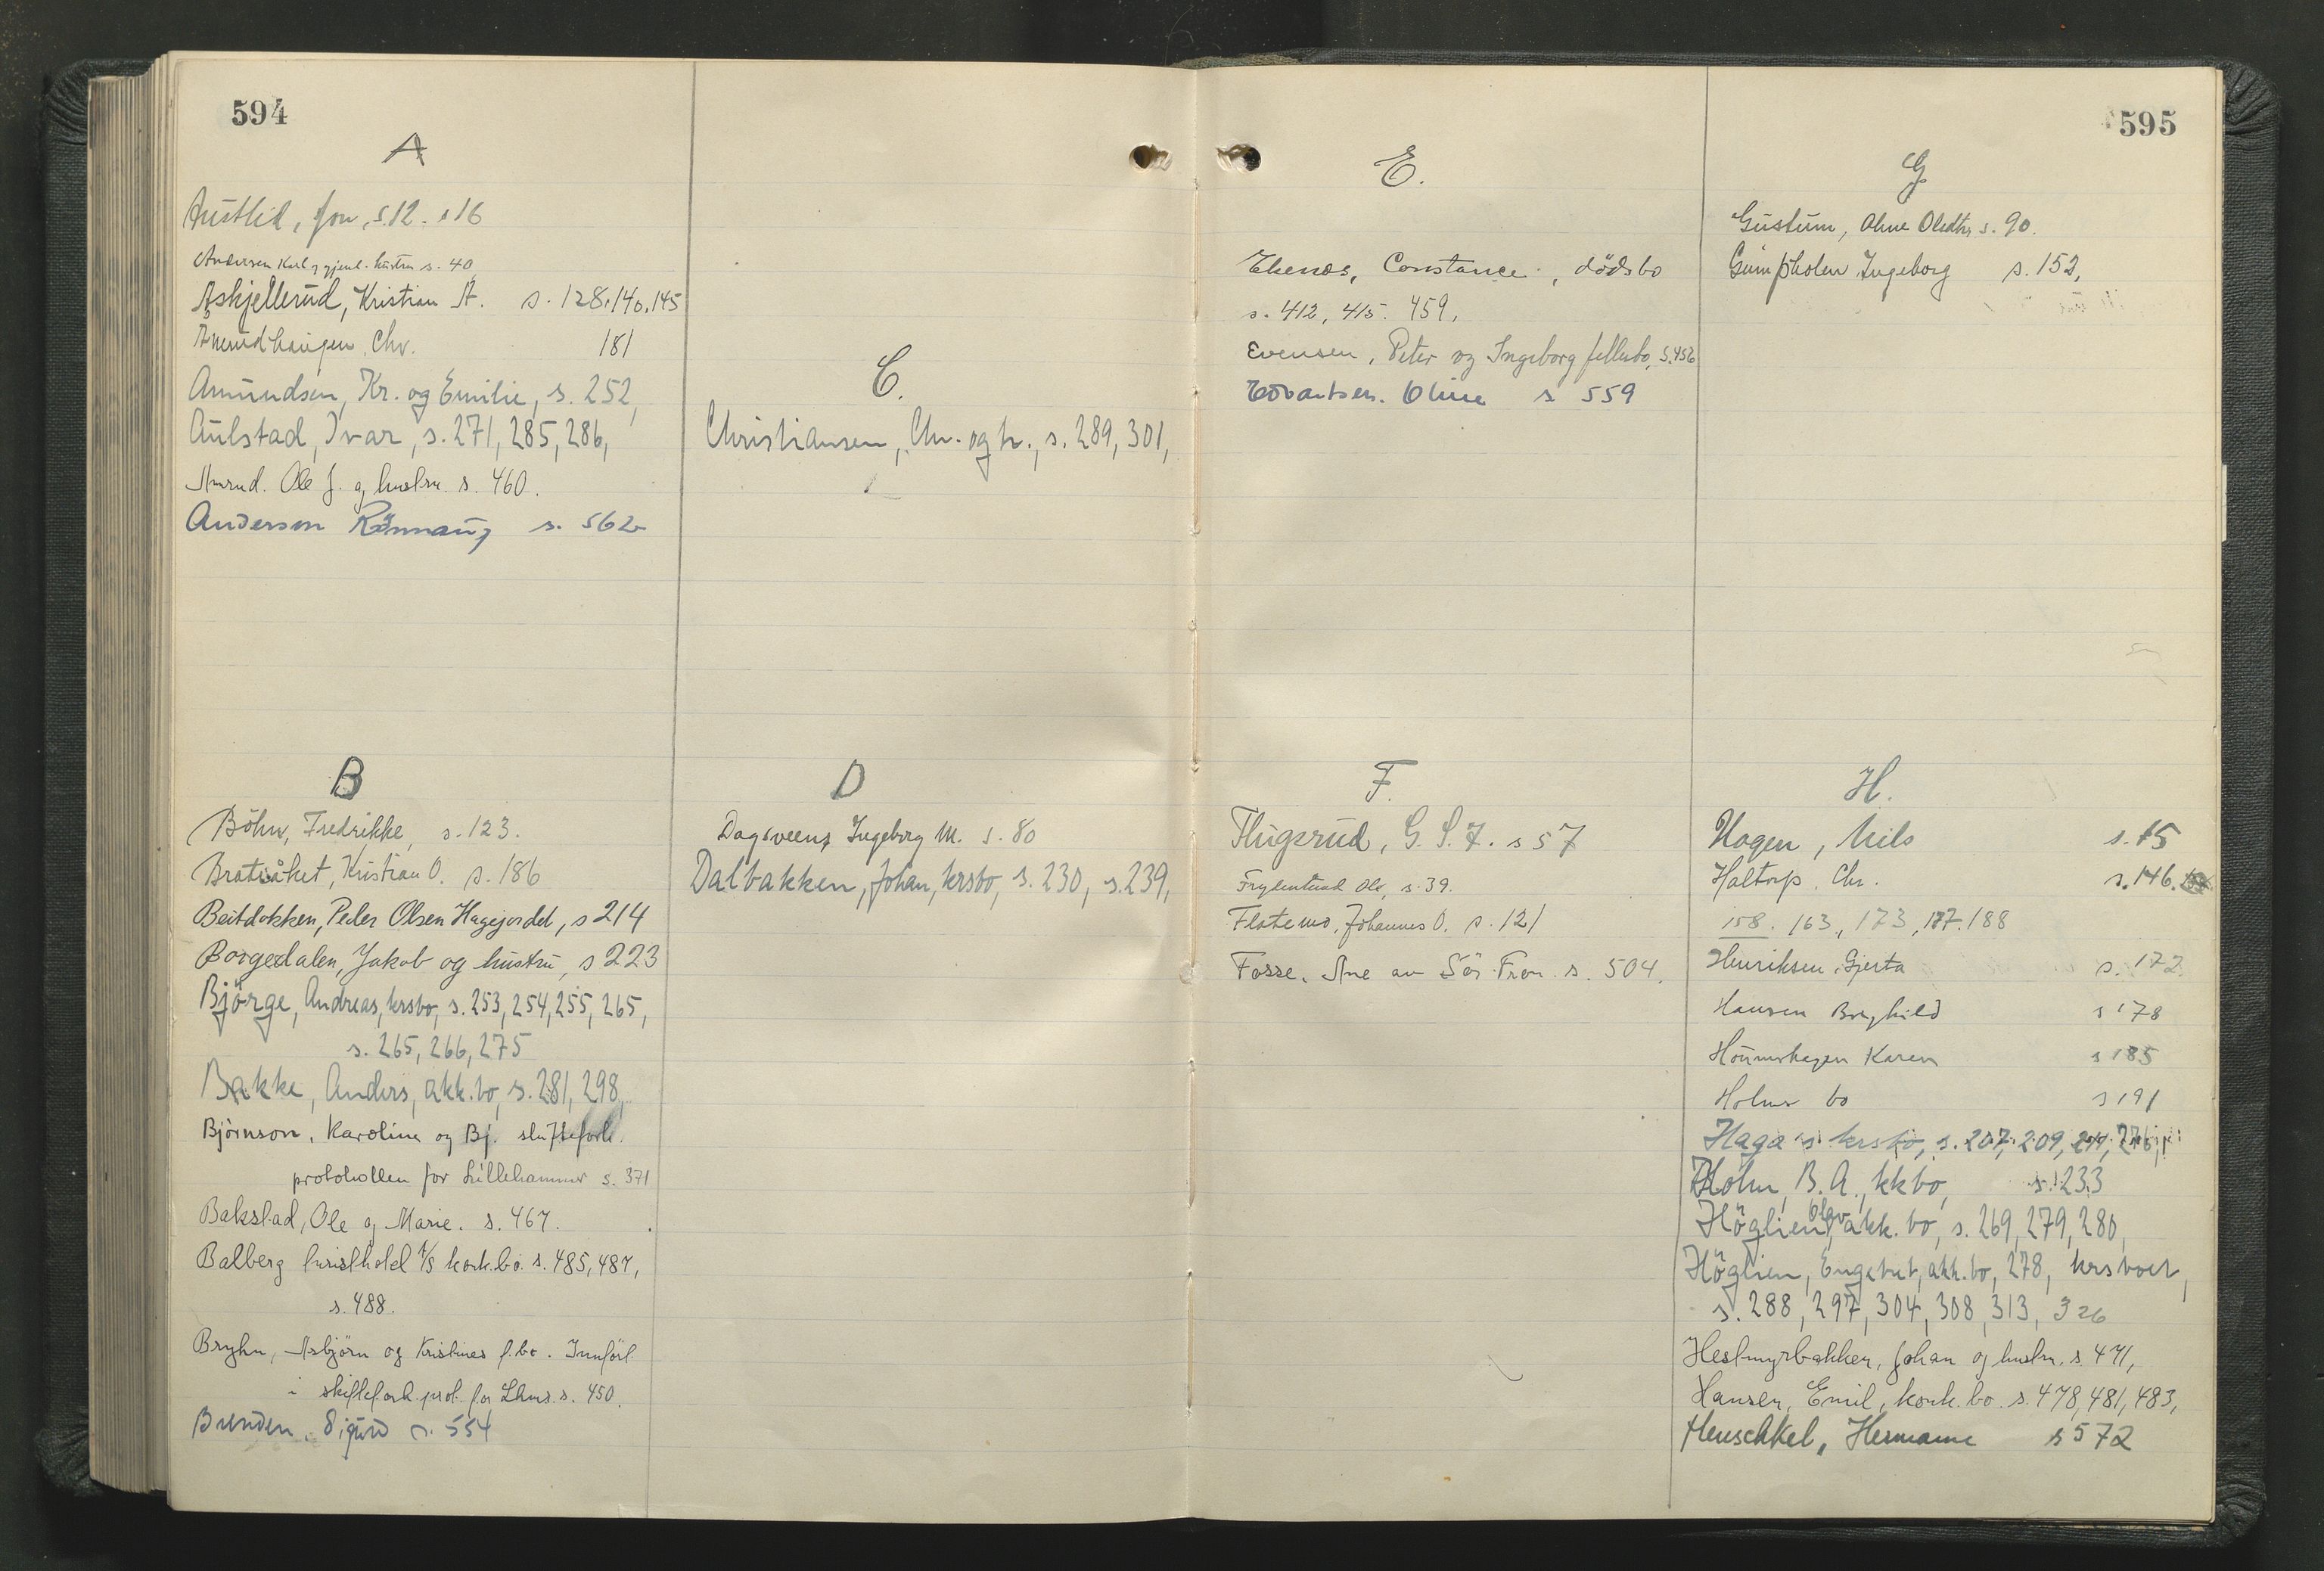 594
A
Austlid, Jon, s.12. s 16
Andersen Karl og gjenl. hustru s. 40
Askjellerud, Kristian A. s. 128.140.145
Amundhaugen, Chr. 181
Amundsen, Kr. og Emilie, s. 252,
Aulstad, Ivar, s. 271, 285, 286,
Amrud. Ole J. og hustru s. 460.
Anderson Rönnaug s. 562
B
Böhn, Fredrikke, s. 123.
Bratsåket, Kristian O. s. 186
Beitdokken, Peder Olsen Hagejordet, s 214
Borgedalen, Jakob og hustru, s 223
Björge, Andreas, krsbo, s. 253, 254, 255, 265,
s. 265, 266, 275
Bakke, Anders, akk.bo, s. 281, 298,
Björnson, Karoline og Bj. skiftefork.
protokollen for Lillehammer s. 371
Bakstad, Ole og Marie. s. 467.
Balberg turisthotel A/S konk.bo. s. 485, 487,
s. 488.
Bryhn, Asbjörn og Kristines f.bo. Innfört
i skiftefork.prot. for Lhmr. s. 450.
Brenden, Sigurd s. 554
C.
Christiansen, Chr. og h., s. 289, 301,
D
Dagsveen, Ingeborg M. s. 80
Dalbakken, Johan, krsbo, s. 230, s. 239,
595
E.
Ekenæs, Constance, dödsbo
s. 412, 415. 459,
Evensen, Peter og Ingeborg fellesbo, s. 456
Edvartsen. Oline s 559
F.
Flugsrud, G. S. F. s 57
Fryslund Ole, s. 39.
Flatemo, Johannes O. s. 121
Fosse, Ane av Sör-Fron s. 504.
G
Gustum, Ahne Olsdtr s. 90.
Gümpholen Ingeborg s. 152,
H.
Hagen, Nils s. 15
Haltorp. Chr. s. 146.
158. 163, 173, 177. 188
Henriksen, Gjerta s. 172.
Hansen Borghild s 178
Hounshagen Karen s 185
Holms bo s 191
Haga's krsbo, s. 207, 209, 211, 276,
Holm, B. A., kkbo, s. 233
Höglien, Olav akk. bo, s. 269, 279, 280,
Höglien, Engebret, akk.bo, 278, krsboet,
s. 288, 297, 304, 308, 313, 326
Hestmyrbakken, Johan og hustr. s. 471,
Hansen, Emil, konk. bo. s. 478, 481, 483,
Henschkel, Hermann s 572